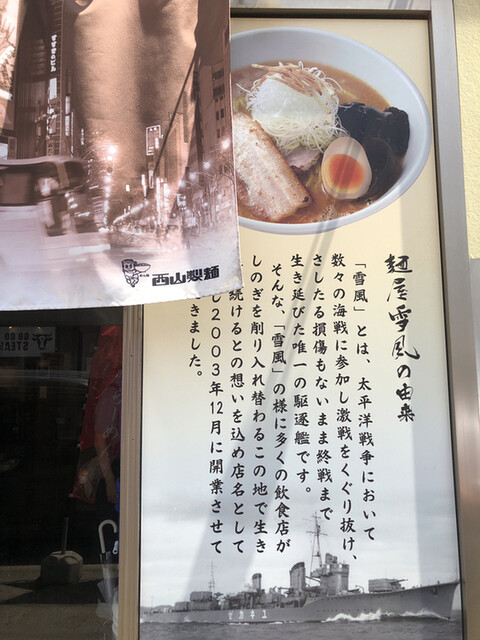 すすきのビル
西山製麺
麺屋雪風の由来
「雪風」とは、太平洋戦争において
数々の海戦に参加し激戦をくぐり抜け、
さしたる損傷もないまま終戦まで
生き延びた唯一の駆逐艦です。
そんな、「雪風」の様に多くの飲食店が
しのぎを削り入れ替わるこの地で生き
続けるとの想いを込め店名として
し2003年12月に開業させて
きました。
GO GO
STEA